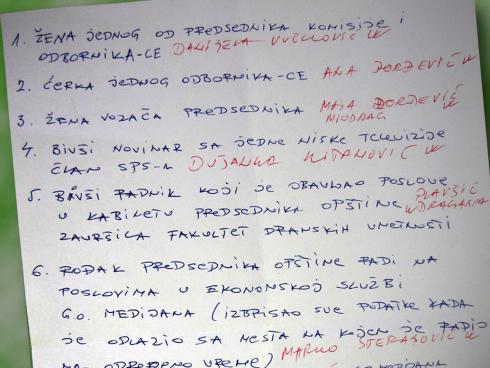 1. ŽENA JEDNOG OD PREDSEDNIKA KOMISIJE I
ODBORNIKA-CE DANIJELA VUČKOVIĆ
2. ĆERKA JEDNOG ODBORNIKA-CE ANA ĐORĐEVIĆ
3. ŽENA VOZAČA PREDSEDNIKA MAJA ĐORĐEVIĆ
MIODRAG
4. BIVŠI NOVINAR SA JEDNE NIŠKE TELEVIZIJE
ČLAN SPS-A DUŠANKA
5. BIVŠI RADNIK KOJI JE OBAVLJAO POSLOVE PLAVŠIĆ
U KABINETU PREDSEDNIKA OPŠTINE DRAGANA
ZAVRŠILA FAKULTET DRAMSKIH UMETNOSTI
6. ROĐAK PREDSEDNIKA OPŠTINE RADI NA
POSLOVIMA U EKONOMSKOJ SLUŽBI
G.O. MEDIJANA (IZBRISAO SVE PODATKE KADA
JE ODLAZIO SA MESTA NA KOJEM JE RADIO
NA ODREĐENO VREME) MARKO
MEDIJANA